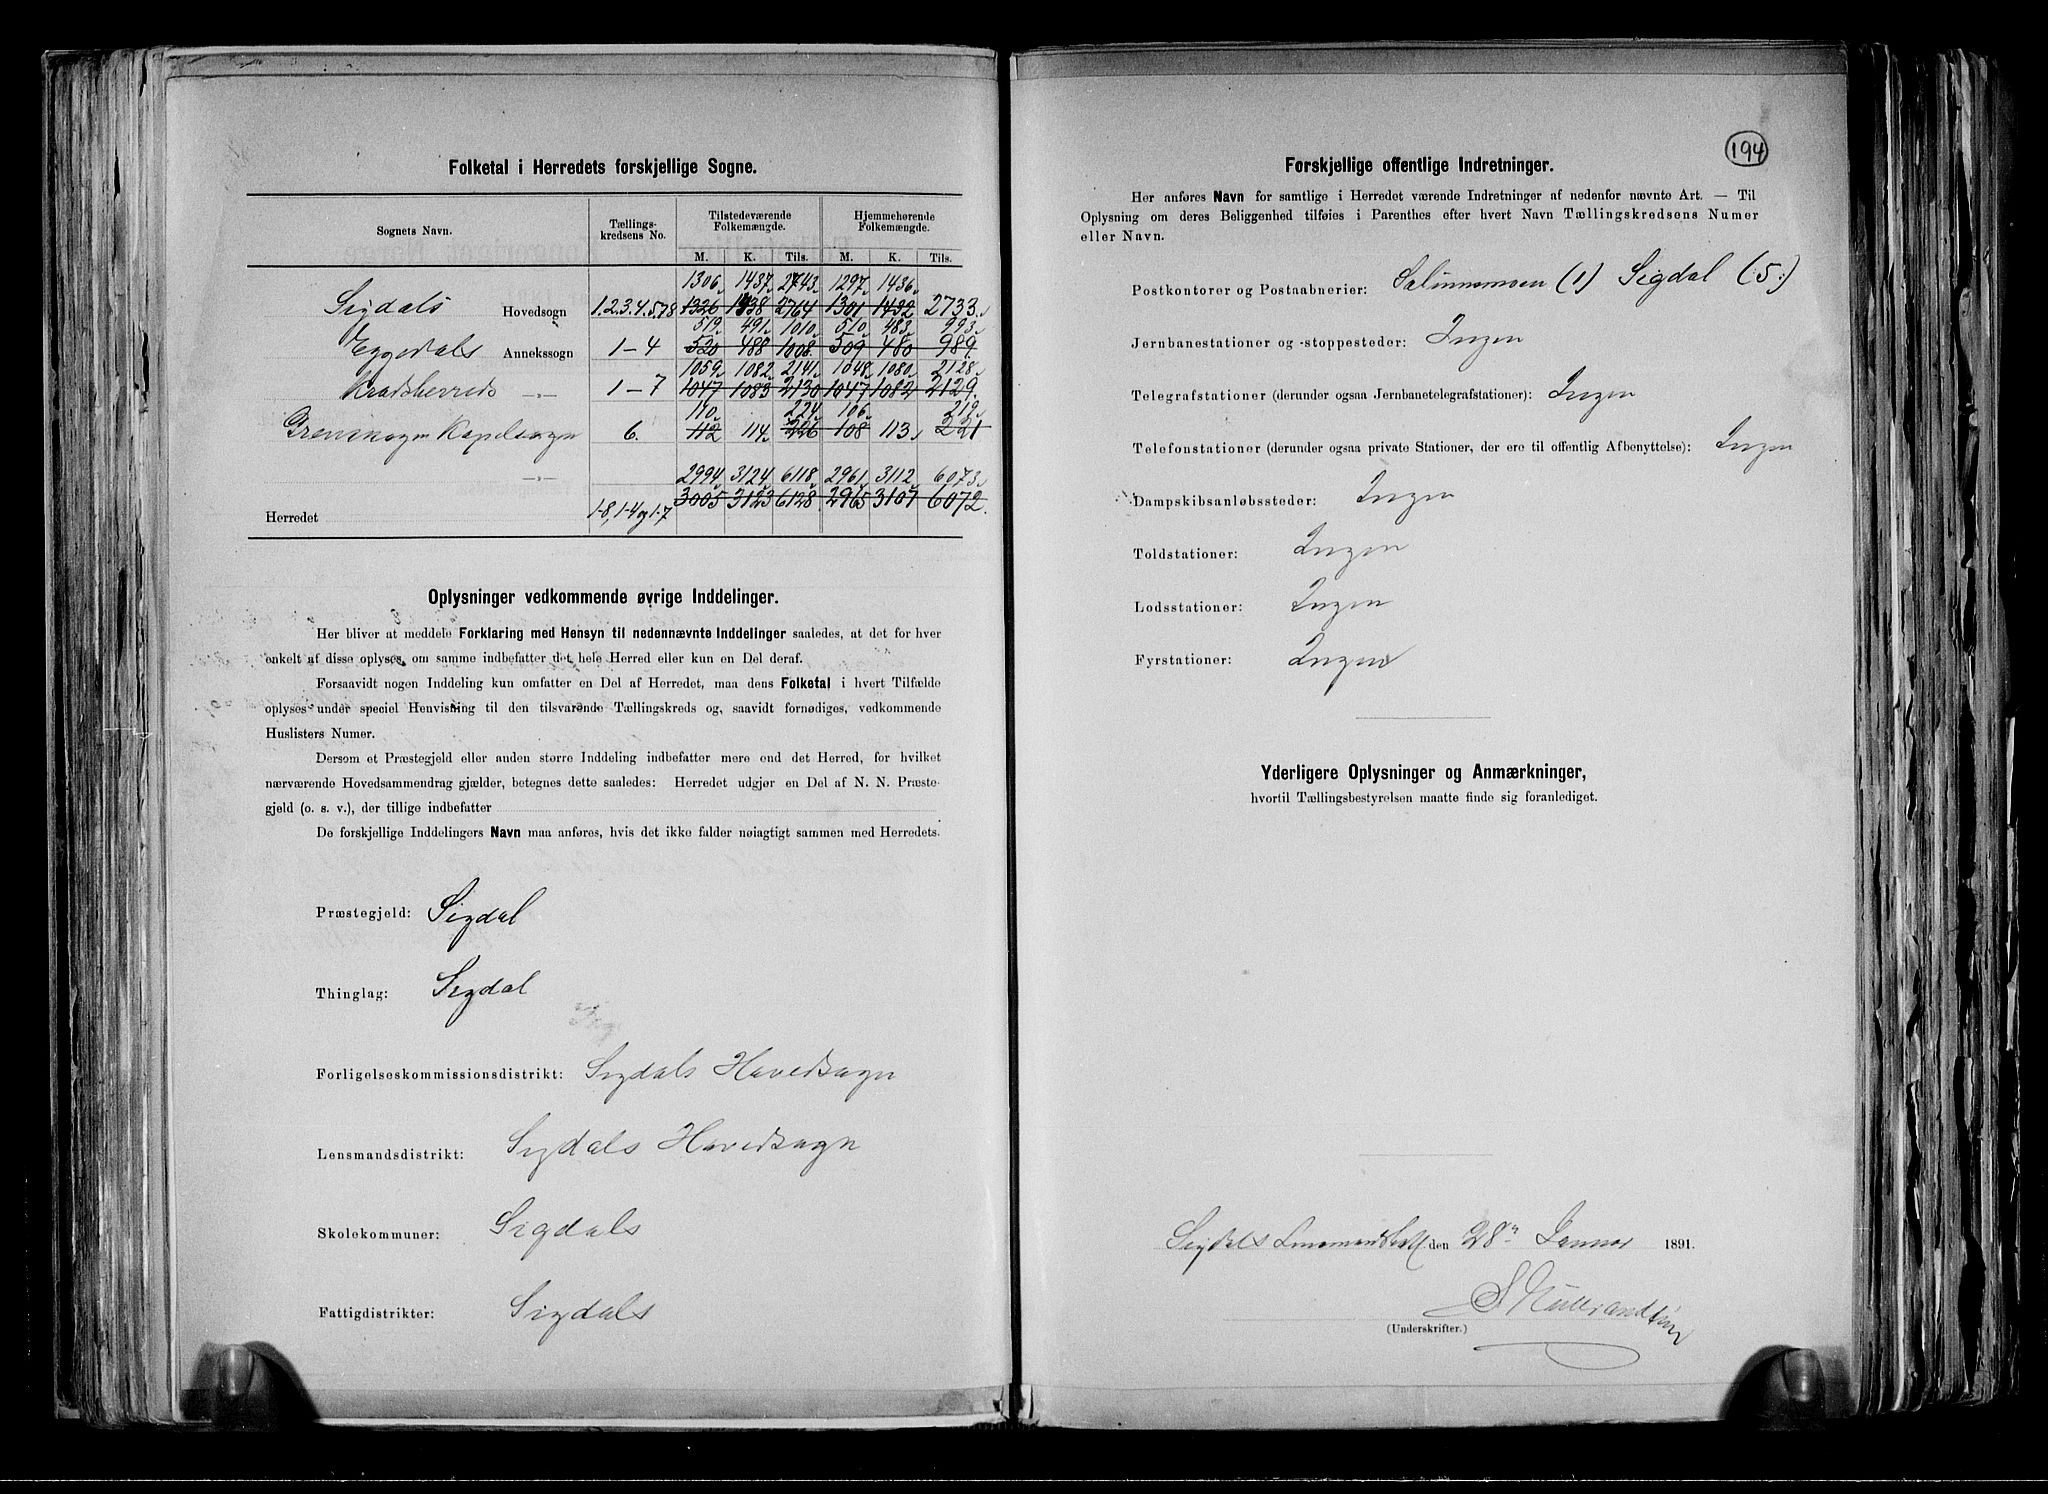 Folketal i Herredets forskjellige Sogne.
Sognets Navn. Tællings-kredsens No. Tilstedeværende Folkemængde. Hjemmehørende Folkemængde.
M. K. Tils. M. K. Tils.
1306 1437 2743 1297 1436
Sigdals Hovedsogn 1.2.3.4.5.78 1326 1438 2764 1301 1432 2733
519 491 1010 510 483 993
Eggedals Annekssogn 1-4 520 488 1008 509 480 989
1059 1082 2141 1048 1080 2128
Kradsherreds -„- 1-7 1047 1083 2130 1047 1082 2129
110 224 106 219
Kapelsogn 6. 112 114 226 108 113 221
2994 3124 6118 2961 3112 6073
-„-
3005 3123 6128 2965 3107 6072
Herredet 1-8, 1-4 og 1-7
Oplysninger vedkommende øvrige Inddelinger.
Her bliver at meddele Forklaring med Hensyn til nedennævnte Inddelinger saaledes, at det for hver
enkelt af disse oplyses, om samme indbefatter det hele Herred eller kun en Del deraf.
Forsaavidt nogen Inddeling kun omfatter en Del af Herredet, maa dens Folketal i hvert Tilfælde
oplyses under speciel Henvisning til den tilsvarende Tællingskreds og, saavidt fornødiges, vedkommende
Huslisters Numer.
Dersom et Præstegjeld eller anden større Inddeling indbefatter mere end det Herred, for hvilket
nærværende Hovedsammendrag gjælder, betegnes dette saaledes: Herredet udgjør en Del af N. N. Præste-
gjeld (o. s. v.), der tillige indbefatter
De forskjellige Inddelingers Navn maa anføres, hvis det ikke falder nøiagtigt sammen med Herredets.
Præstegjeld: Sigdal
Thinglag: Sigdal
Forligelseskommissionsdistrikt: Sigdals Hovedsogn
Lensmandsdistrikt: Sigdals Hovedsogn
Skolekommuner: Sigdals
Fattigdistrikter: Sigdals
194
Forskjellige offentlige Indretninger.
Her anføres Navn for samtlige i Herredet værende Indretninger af nedenfor nævnte Art. — Til
Oplysning om deres Beliggenhed tilføies i Parenthes efter hvert Navn Tællingskredsens Numer
eller Navn.
Postkontorer og Postaabnerier: (1) Sigdal (5)
Jernbanestationer og -stoppesteder: Ingen
Telegrafstationer (derunder ogsaa Jernbanetelegrafstationer): Ingen
Telefonstationer (derunder ogsaa private Stationer, der ere til offentlig Afbenyttelse): Ingen
Dampskibsanløbssteder: Ingen
Toldstationer: Ingen
Lodsstationer: Ingen
Fyrstationer: Ingen
Yderligere Oplysninger og Anmærkninger,
hvortil Tællingsbestyrelsen maatte finde sig foranlediget.
Sigdals den 28 Januar 1891.
(Underskrifter.)